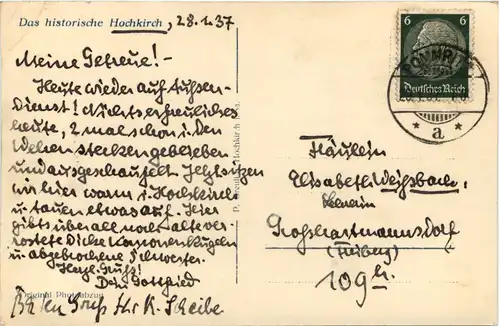 Das historische Hochkirch, 28.1.37
Meine Getreue!-
Heute wieder auf Außen-
Dienst! Nichts erfreuliches
heute, 2 mal schon i. den
Wehen stecken geblieben
und ausgeschaufelt. Jetzt sitzen
wir hier warm i. Hochkirch
u. tauen etwas auf. Hier
gibts überall noch alte ver-
rostete dicke Kanonenkugeln
u. abgebrochene Schwerter.
Herzl. Gruß!
Dein Gottfried
Gruß Ihr K. Scheibe
Original Photoabzug
6 6
Deutsches Reich
a
Fräulein
Elisabeth Weichsbach,
Großhartmannsdorf
(Freiberg)
109